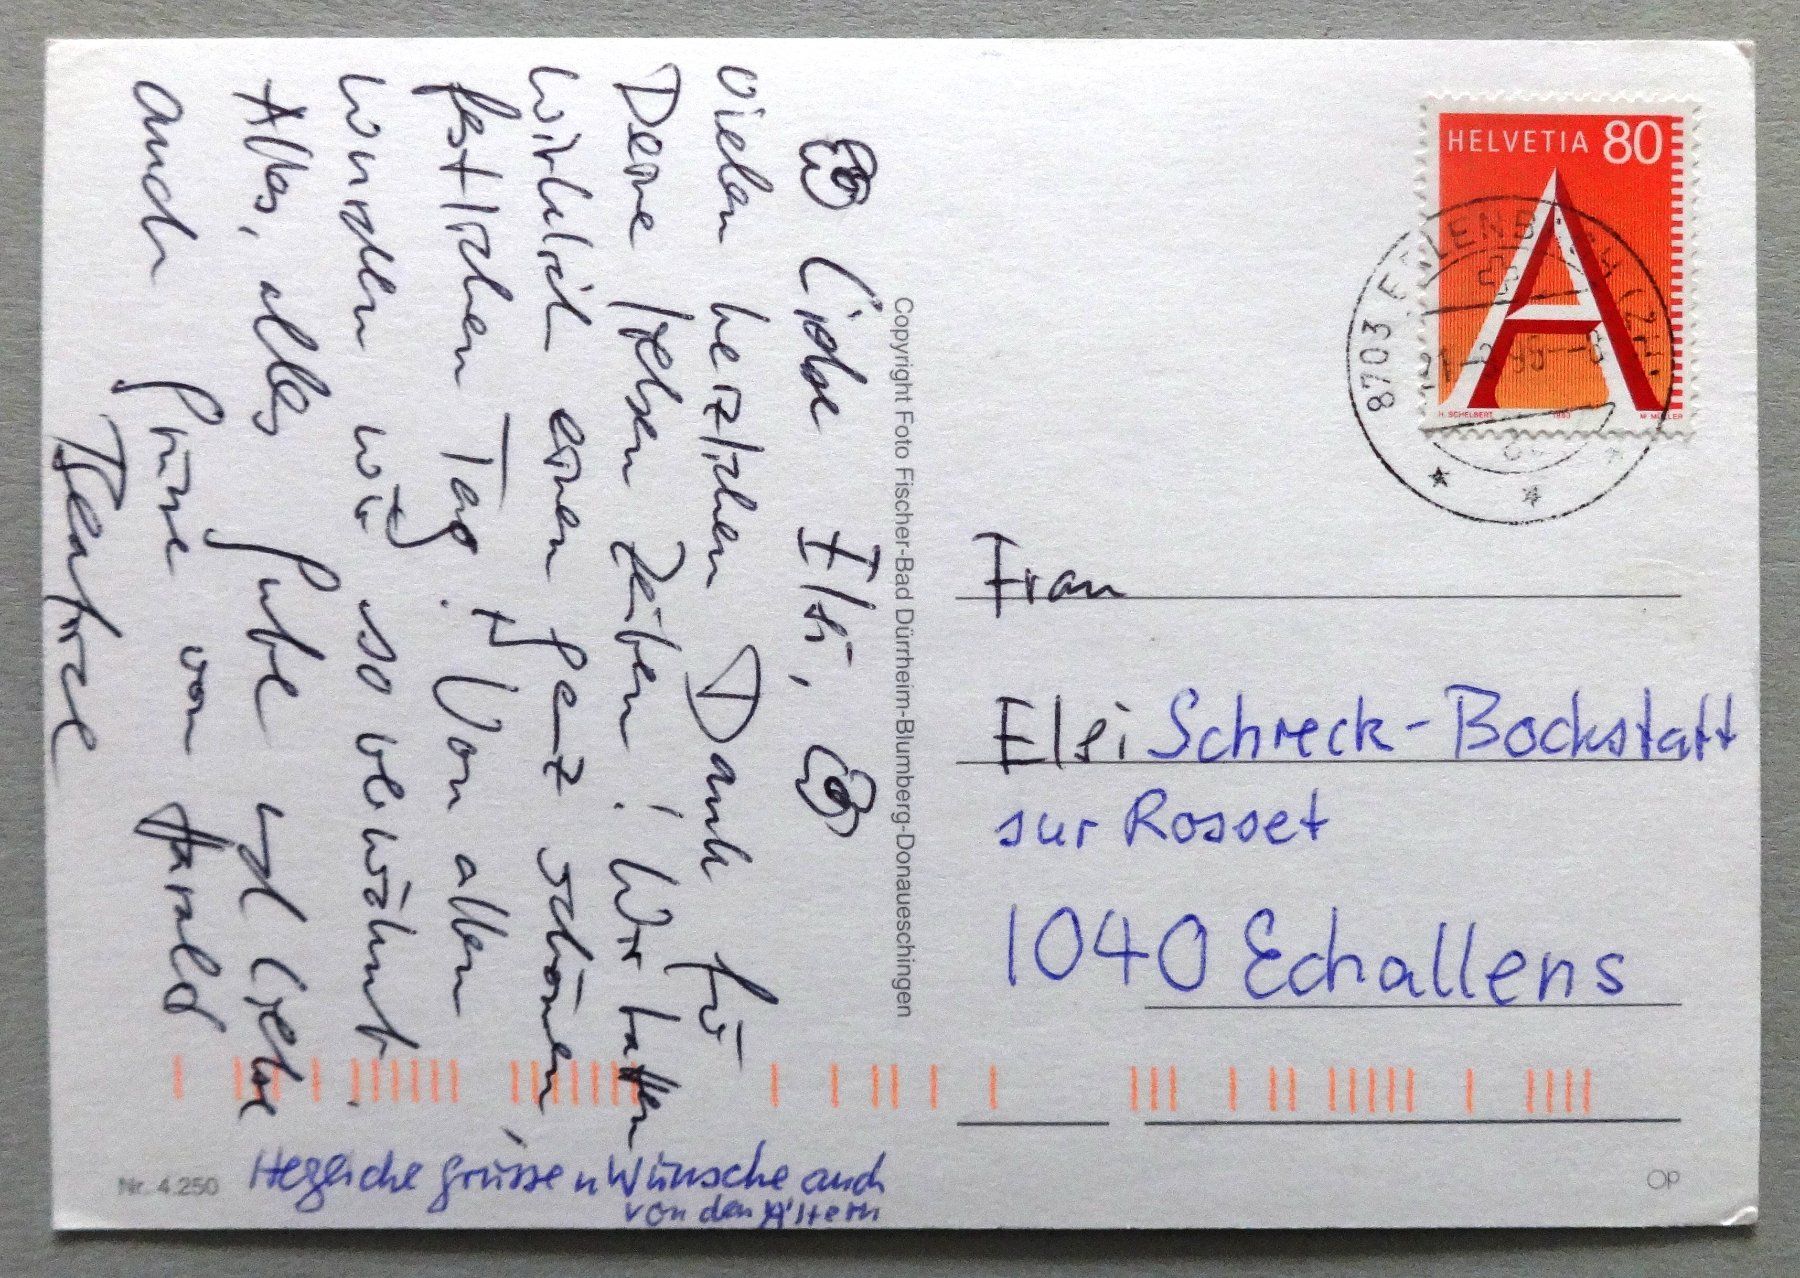 Liebe Elsi,
vielen herzlichen Dank für
Deine lieben Zeilen! Wir hatten
wirklich einen ganz schönen,
festlichen Tag! Von allen
wurden wir so verwöhnt.
Alles, alles Gute und Liebe
auch Grüsse von Harald
Beatrice
Herzliche Grüsse u Wünsche auch
von den Altern
Nr. 4.250
Copyright Foto Fischer-Bad Dürrheim-Blumberg-Donaueschingen
HELVETIA 80
H. SCHELBERT 1993 M. MÜLLER
8703 ERLENBACH (ZH)
Frau
Elsi Schreck-Bockstatt
sur Rosset
1040 Echallens
OP